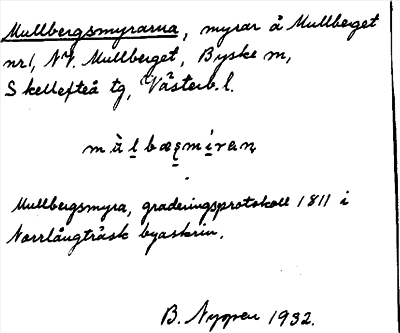 Mullbergsmyrarna, myrar å Mullberget
nr 1, NV. Mullberget, Byske sn,
Skellefteå tg, Västerb. l.
Mullbergsmyra, graderingsprotokoll 1811 i
Norrlångträsk byaskrin.
B. Nygren 1932.